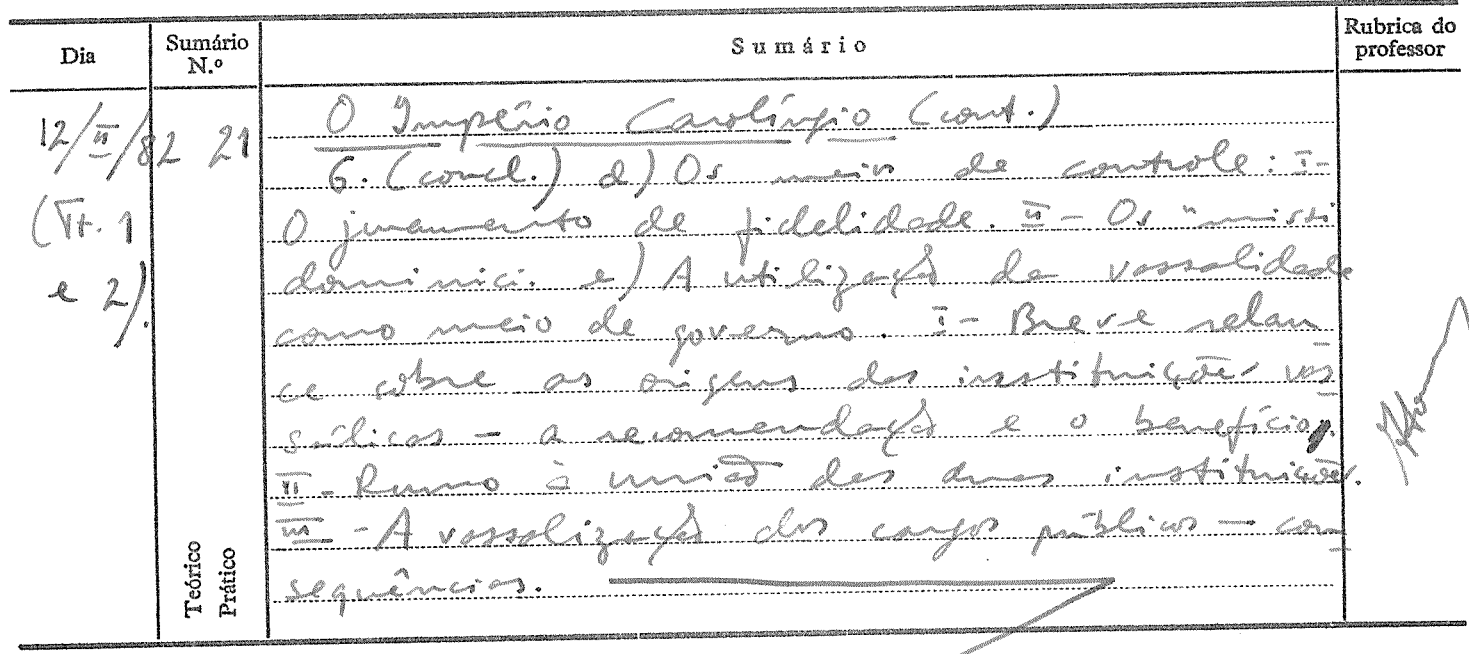 Dia
Sumário
N.º
Sumário
Rubrica do
professor
12/II/82 21
O Império Carolíngio (cont.)
6. (concl.) d) Os meios de controle: I-
(Tt. 1
O juramento de fidelidade. II - Os "missi
e 2).
dominici. e) A utilização da vassalidade
como meio de governo. I - Breve relan
ce sobre as origens das instituições vas
sálicas - a recomendação e o benefício.
II - Rumo à união das duas instituições.
III - A vassalização dos cargos públicos - con
sequências.
Teórico
Prático